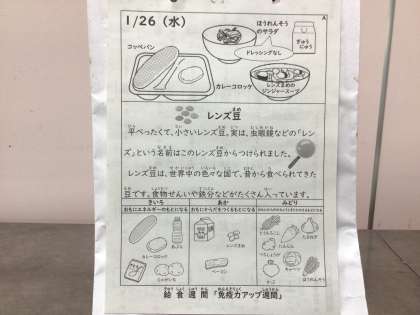 1/26（水）
A
ほうれんそう
のサラダ
ドレッシングなし
ぎゅう
にゅう
コッペパン
カレーコロッケ
レンズまめの
ジンジャースープ
レンズ豆
平べったくて、小さいレンズ豆。実は、虫眼鏡などの「レン
ズ」という名前はこのレンズ豆からつけられました。
レンズ豆は、世界中の色々な国で、昔から食べられてきた
豆です。食物せんいや鉄分などがたくさん入っています。
きいろ
あか
みどり
おもにエネルギーのもとになる
おもにからだをつくるもとになる
カレーコロッケ
あぶら
じゃがいも
レンズまめ
ベーコン
にんじん
たまねぎ
キャベツ
ほうれんそう
給食週間「免疫力アップ週間」